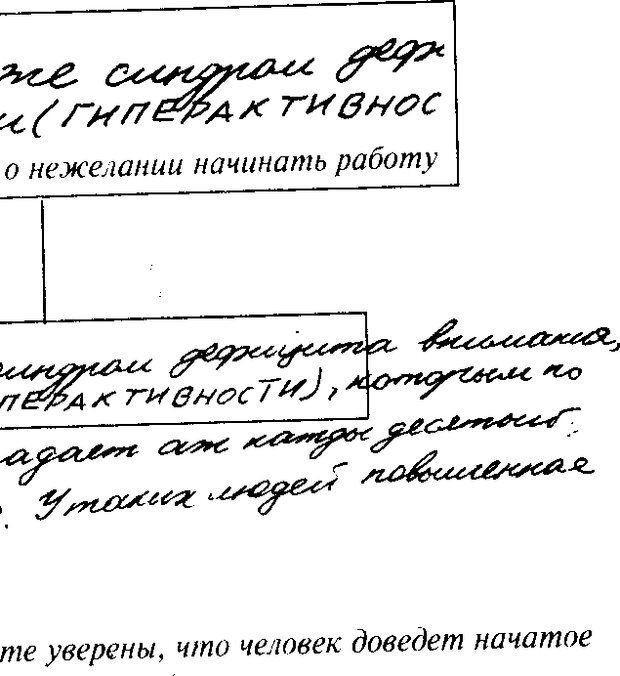 же синдром дефи
и (ГИПЕРАКТИВНОС
о нежелании начинать работу
синдром дефицита внимания,
ПЕРАКТИВНОСТИ), которым по
адает аж кажды десятый.
. У таких людей повышенная
те уверены, что человек доведет начатое